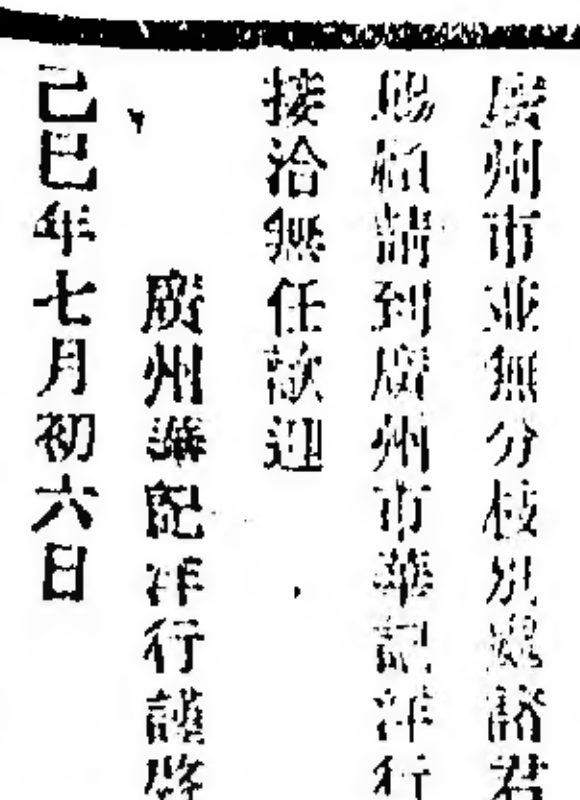 廣州市並無分枝別處諸君
賜顧請到廣州市華記洋行
接洽無任歡迎
廣州華記洋行謹啓
己巳年七月初六日